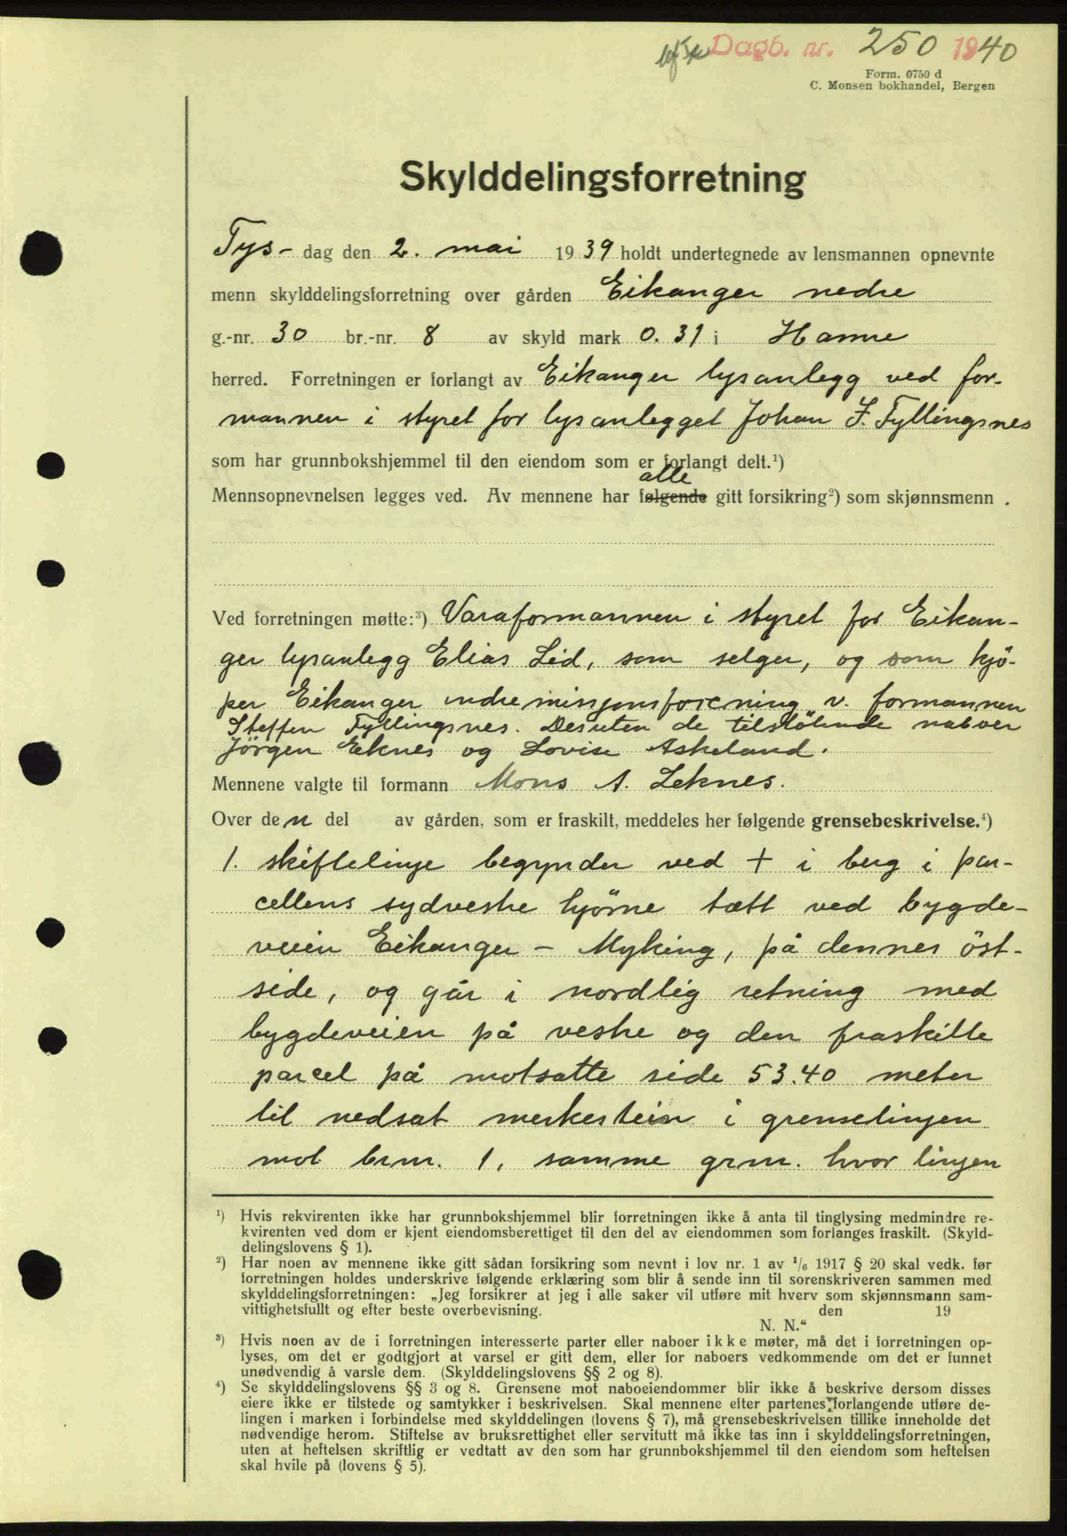 Dagb. nr. 250 1940
Form. 0750 d
C. Monsen bokhandel, Bergen
Skylddelingsforretning
Tys- dag den 2. mai 1939 holdt undertegnede av lensmannen opnevnte
menn skylddelingsforretning over gården Eikanger nedre
g.-nr. 30 br.-nr. 8 av skyld mark 0.31 i Hamre
herred. Forretningen er forlangt av Eikanger lysanlegg ved for-
mannen i styret for lysanlegget Johan J. Fyllingsnes
som har grunnbokshjemmel til den eiendom som er forlangt delt.¹)
alle
Mennsopnevnelsen legges ved. Av mennene har følgende gitt forsikring²) som skjønnsmenn .
Ved forretningen møtte:³) Varaformannen i styret for Eikan-
ger lysanlegg Elias Lid, som selger, og som kjö-
per Eikanger indremisjonsforening v. formannen
Steffen Fyllingsnes. Desuten de tilstötende naboer
Jörgen Eknes og Lovise Askeland.
Mennene valgte til formann Mons A. Leknes.
Over den del av gården, som er fraskilt, meddeles her følgende grensebeskrivelse.⁴)
1. skiftelinje begynder ved + i berg i par-
cellens sydvestre hjörne tætt ved bygde-
veien Eikanger - Myking, på dennes öst-
side, og går i nordlig retning med
bygdeveien på vestre og den fraskilte
parcel på motsatte side 53.40 meter
til nedsat merkestein i grenselinjen
mot brm. 1, samme grm. hvor linjen
¹) Hvis rekvirenten ikke har grunnbokshjemmel blir forretningen ikke å anta til tinglysing medmindre re-
kvirenten ved dom er kjent eiendomsberettiget til den del av eiendommen som forlanges fraskilt. (Skyld-
delingslovens § 1).
²) Har noen av mennene ikke gitt sådan forsikring som nevnt i lov nr. 1 av ¹/₆ 1917 § 20 skal vedk. før
forretningen holdes underskrive følgende erklæring som blir å sende inn til sorenskriveren sammen med
skylddelingsforretningen: „Jeg forsikrer at jeg i alle saker vil utføre mit hverv som skjønnsmann sam-
vittighetsfullt og efter beste overbevisning. den 19
N. N.“
³) Hvis noen av de i forretningen interesserte parter eller naboer ikke møter, må det i forretningen op-
lyses, om det er godtgjort at varsel er gitt dem, eller for naboers vedkommende om det er funnet
unødvendig å varsle dem. (Skylddelingslovens §§ 2 og 8).
⁴) Se skylddelingslovens §§ 3 og 8. Grensene mot naboeiendommer blir ikke å beskrive dersom disses
eiere ikke er tilstede og samtykker i beskrivelsen. Skal mennene efter partenes forlangende utføre de-
lingen i marken i forbindelse med skylddelingen (lovens § 7), må grensebeskrivelsen tillike inneholde det
nødvendige herom. Stiftelse av bruksrettighet eller servitutt må ikke tas inn i skylddelingsforretningen,
uten at heftelsen skriftlig er vedtatt av den som har grunnbokshjemmel til den eiendom som heftelsen
skal hvile på (lovens § 5).